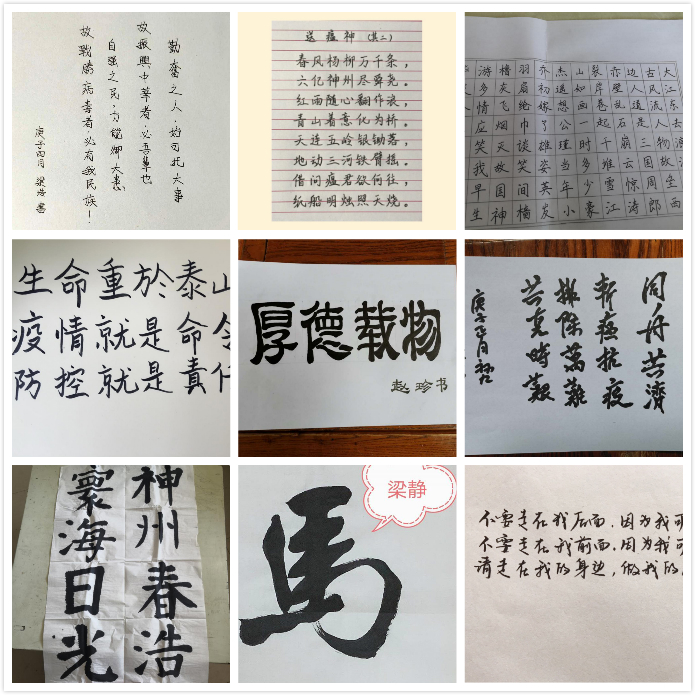 勤奮之人，始可成大事
故振興中華者，必吾輩也
自强之民，方能御大患
故戰勝病毒者必有我民族！
庚子四月 梁 書
送瘟神（其二）
春风杨柳万千条，
六亿神州尽舜尧。
红雨随心翻作浪，
青山着意化为桥。
天连五岭银锄落，
地动三河铁臂摇。
借问瘟君欲何往，
纸船明烛照天烧。
古风流人物故垒西
边人道是三国周郎
赤壁乱石崩云惊涛
裂岸卷起千堆雪江
山如画一时多少豪
杰遥想公瑾当年小
乔初嫁了雄姿英发
羽扇纶巾谈笑间樯
橹灰飞烟灭故国神
游多情应笑我早生
生命重於泰山
疫情就是命令
防控就是責任
厚德载物
赵珍书
同舟共濟
斬瘟抗疫
排除萬難
共克時艱
庚子正月
神州春浩
寰海日光
馬
梁静
不要走在我后面，因为我可
不要走在我前面，因为我可
请走在我的身边，做我的